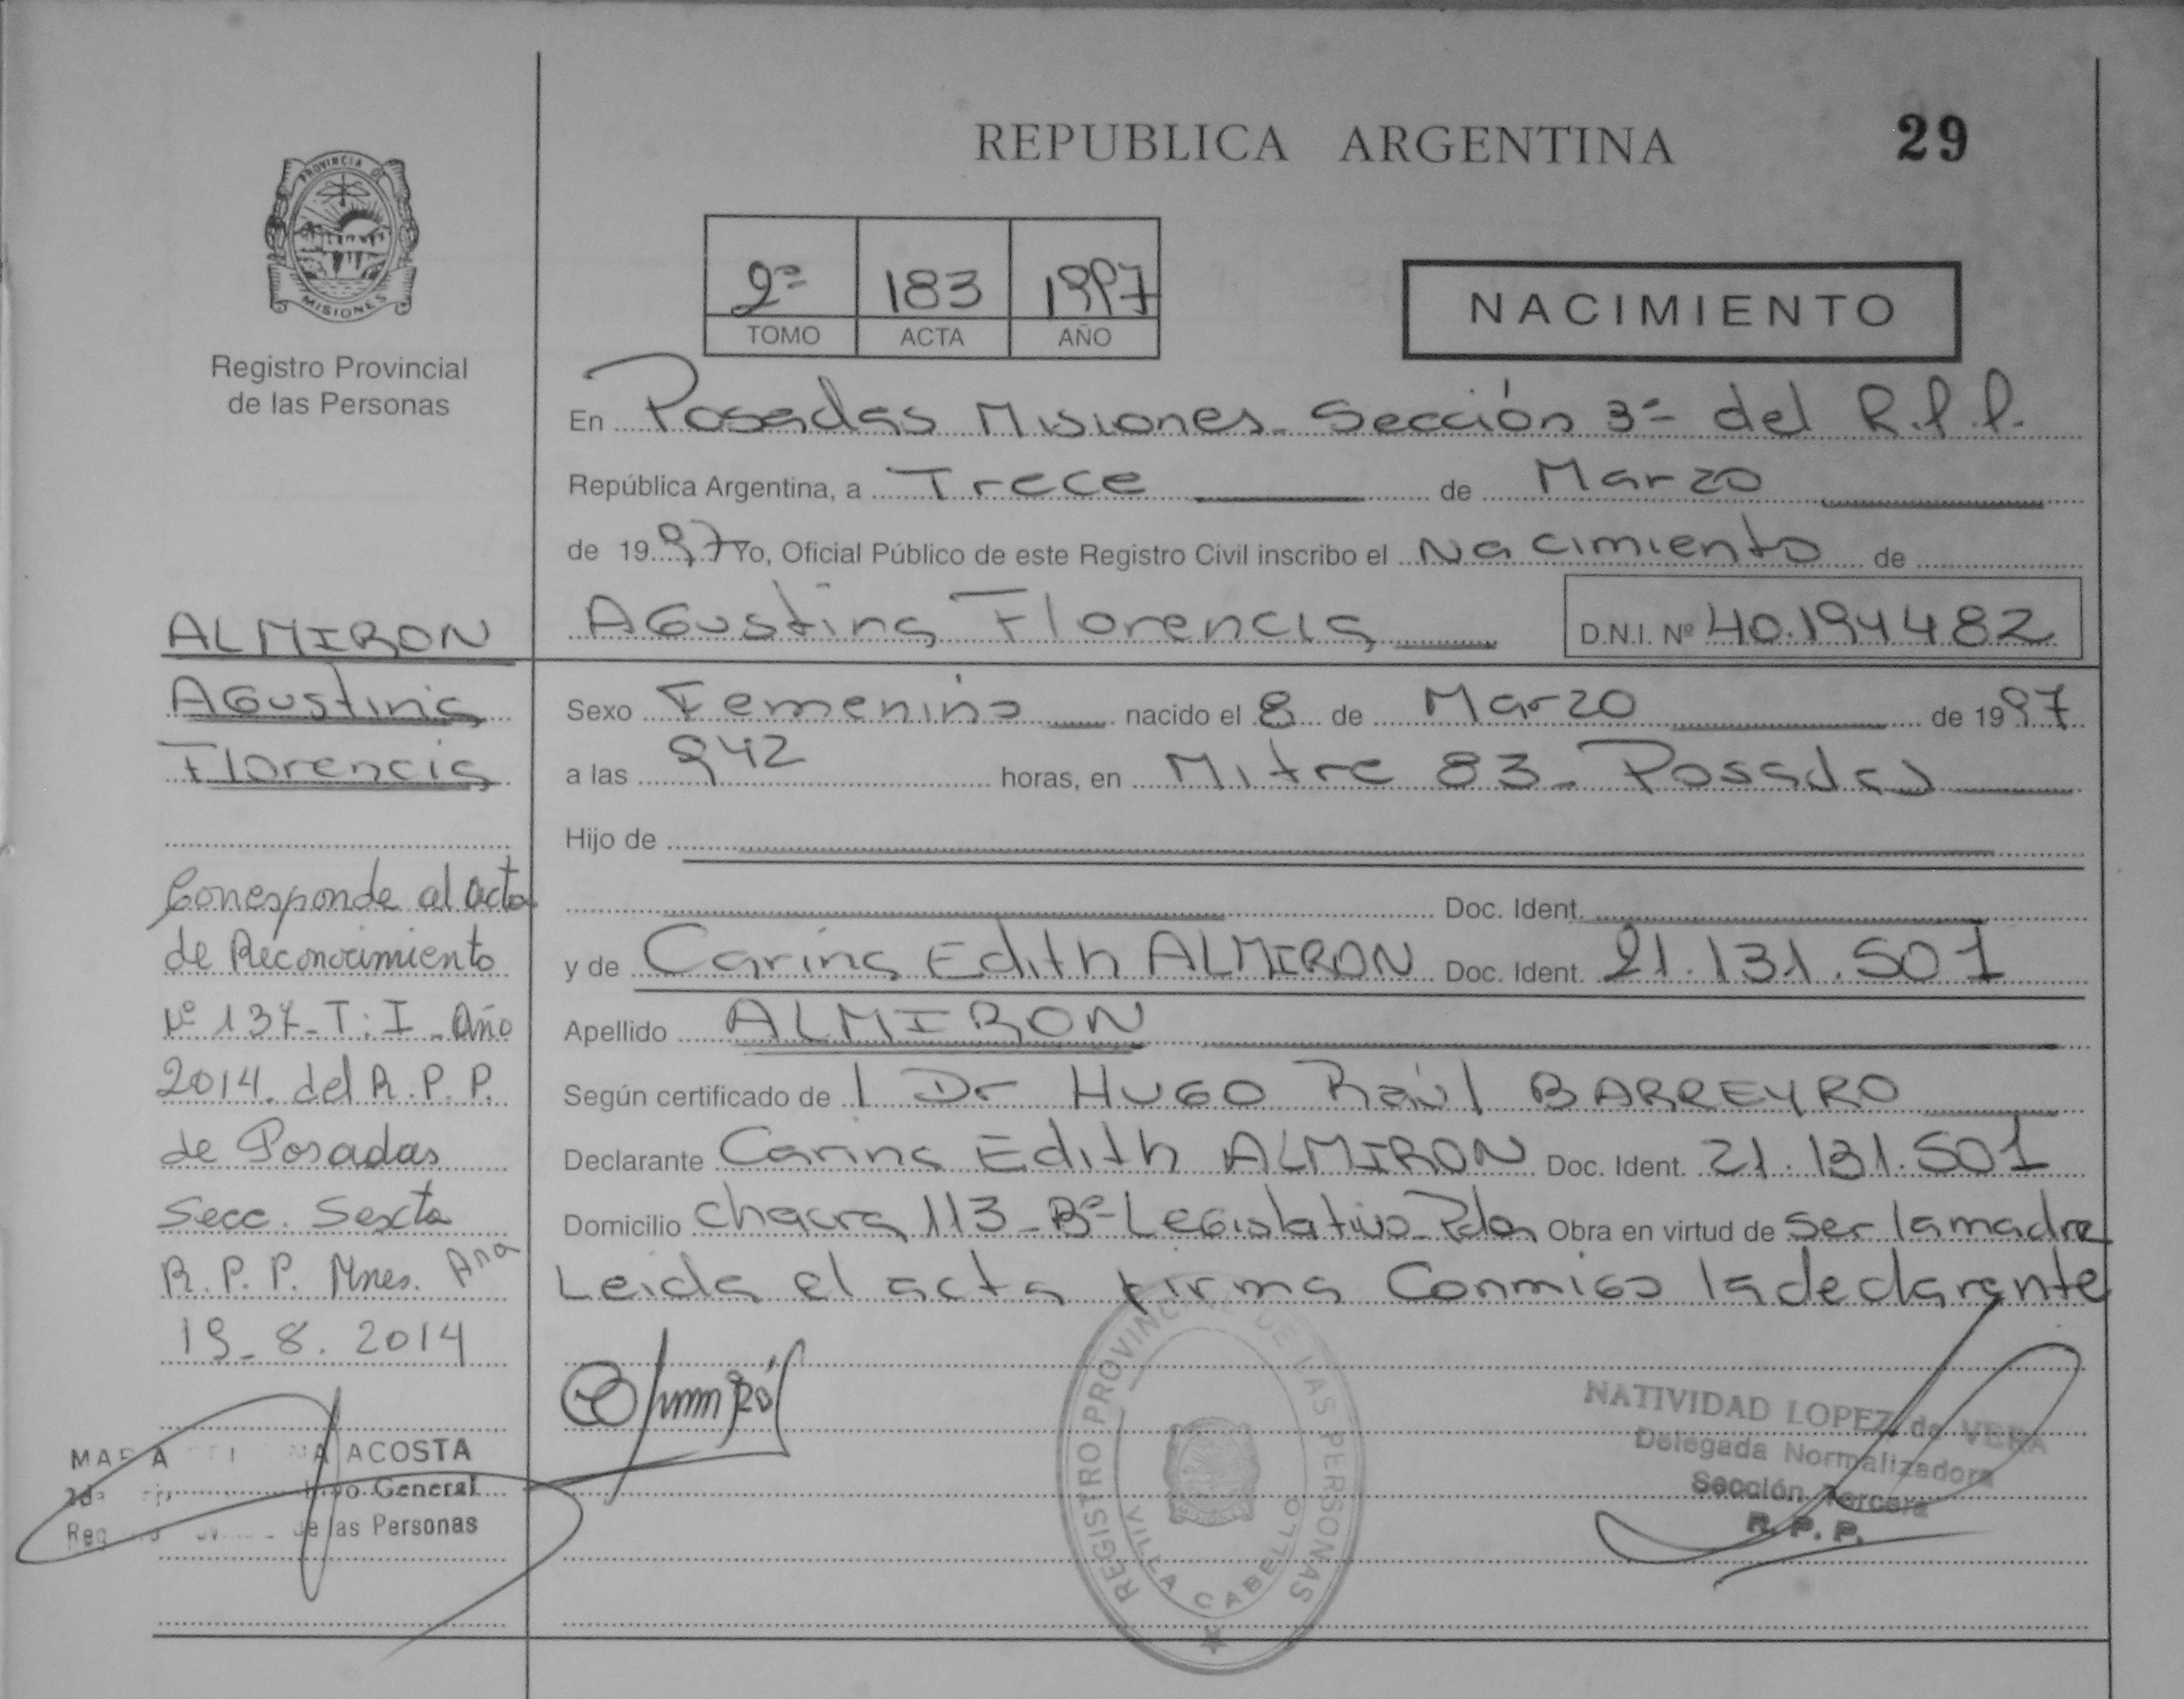 REPUBLICA ARGENTINA
29
PROVINCIA DE
MISIONES
Registro Provincial
de las Personas
2º 183 1997
TOMO ACTA AÑO
NACIMIENTO
En Posadas Misiones Sección 3ª del R.P.P.
República Argentina, a Trece de Marzo
de 1997 Yo, Oficial Público de este Registro Civil inscribo el Nacimiento de
Agustina Florencia D.N.I. Nº 40.194482
Sexo Femenino nacido el 8 de Marzo de 1997
a las 942 horas, en Mitre 83 - Posadas
Hijo de
Doc. Ident.
y de Carina Edith ALMIRON Doc. Ident. 21.131.501
Apellido ALMIRON
Según certificado de l Dr Hugo Raúl BARREYRO
Declarante Carina Edith ALMIRON Doc. Ident. 21.131.501
Domicilio chacra 113 - Bº Legislativo - Pdas Obra en virtud de ser la madre
Leida el acta firma Conmigo la declarante
ALMIRON
Agustina
Florencia
Corresponde al acta
de Reconocimiento
Nº 137 - T: I - Año
2014. del R.P.P.
de Posadas
Secc. Sexta
R.P.P. Mnes.
19 - 8. 2014
ACOSTA
General
de las Personas
REGISTRO PROVINCIAL DE LAS PERSONAS
VILLA CABELLO
NATIVIDAD LOPEZ de VERA
Delegada Normalizadora
Sección Tercera
R. P. P.